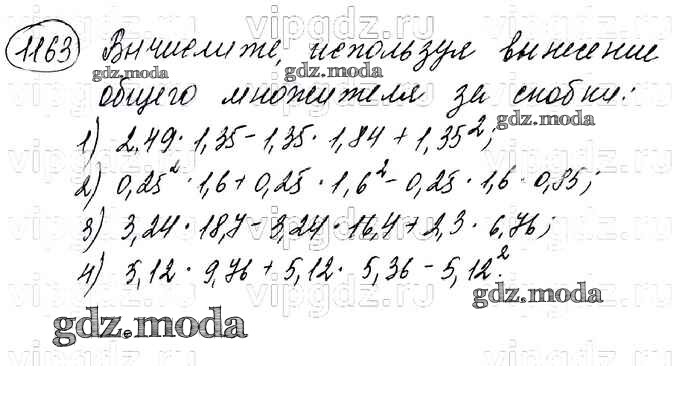 1163 Вычислите, используя вынесение
общего множителя за скобки:
1) 2,49 · 1,35 - 1,35 · 1,84 + 1,35²;
2) 0,25² · 1,6 + 0,25 · 1,6² - 0,25 · 1,6 · 0,85;
3) 3,24 · 18,7 - 3,24 · 16,4 + 2,3 · 6,76;
4) 5,12 · 9,76 + 5,12 · 5,36 - 5,12².
vipgdz.ru
gdz.moda